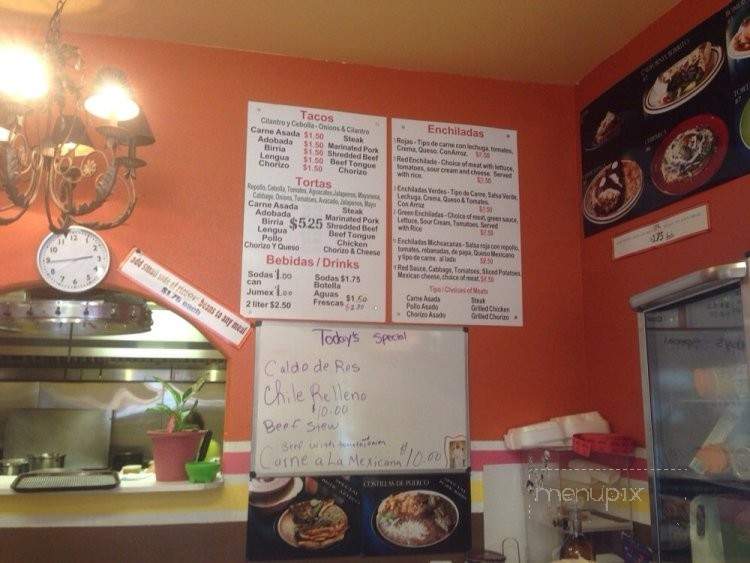 Tacos
Cilantro y Cebolla - Onions & Cilantro
Carne Asada $1.50 Steak
Adobada $1.50 Marinated Pork
Birria $1.50 Shredded Beef
Lengua $1.50 Beef Tongue
Chorizo $1.50 Chorizo
Tortas
Repollo, Cebolla, Tomates, Aguacates, Jalapenos, Mayonesa,
Cabbage, Onions, Tomatoes, Avocado, Jalapenos, Mayo
Carne Asada Steak
Adobada Marinated Pork
Birria $5.25 Shredded Beef
Lengua Beef Tongue
Pollo Chicken
Chorizo Y Queso Chorizo & Cheese
Bebidas / Drinks
Sodas $1.00 Sodas $1.75
can Botella
Jumex $1.00 Aguas $1.50
2 liter $2.50 Frescas
Enchiladas
Rojas - Tipo de carne con lechuga, tomates,
Crema, Queso. Con Arroz. $7.50
Red Enchilada - Choice of meat with lettuce,
tomatoes, sour cream and cheese. Served
with rice. $7.50
Enchiladas Verdes - Tipo de Carne, Salsa Verde,
Lechuga, Crema, Queso & Tomates.
Con Arroz $7.50
Green Enchiladas - Choice of meat, green sauce,
Lettuce, Sour Cream, Tomatoes. Served
with Rice $7.50
Enchiladas Michoacanas - Salsa roja con repollo,
tomates, rebanadas, de papa, Queso Mexicano
y tipo de carne. al lado
Red Sauce, Cabbage, Tomatoes, Sliced Potatoes,
Mexican cheese, choice of meat.
Tipo / Choices of Meats
Carne Asada Steak
Pollo Asado Grilled Chicken
Chorizo Asado Grilled Chorizo
add small side of rice or beans to any meal
$1.75 each
Today's Special
Caldo de Res
Chile Relleno
$10.00
Beef Stew
Beef with
Carne a La Mexicana $10.00
COSTILLAS DE PUERCO
CALIFORNIA BURRITO
menupix